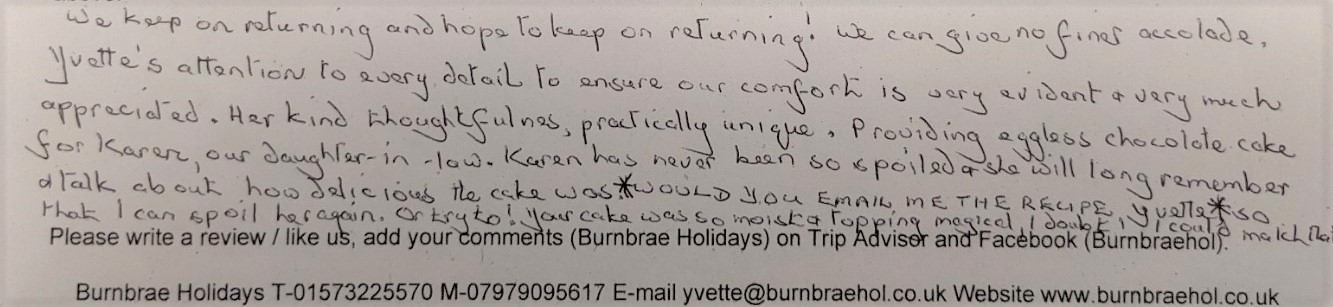 We keep on returning and hope to keep on returning! We can give no finer accolade.
Yvette's attention to every detail to ensure our comfort is very evident & very much
appreciated. Her kind thoughtfulnes, practically unique. Providing eggless chocolate cake
for Karen, our daughter-in-law. Karen has never been so spoiled & she will long remember
& talk about how delicious the cake was. *WOULD YOU EMAIL ME THE RECIPE, Yvette* so
that I can spoil her again. Or try to! Your cake was so moist & topping magical, I doubt I could match that
Please write a review / like us, add your comments (Burnbrae Holidays) on Trip Advisor and Facebook (Burnbraehol).
Burnbrae Holidays T-01573225570 M-07979095617 E-mail yvette@burnbraehol.co.uk Website www.burnbraehol.co.uk